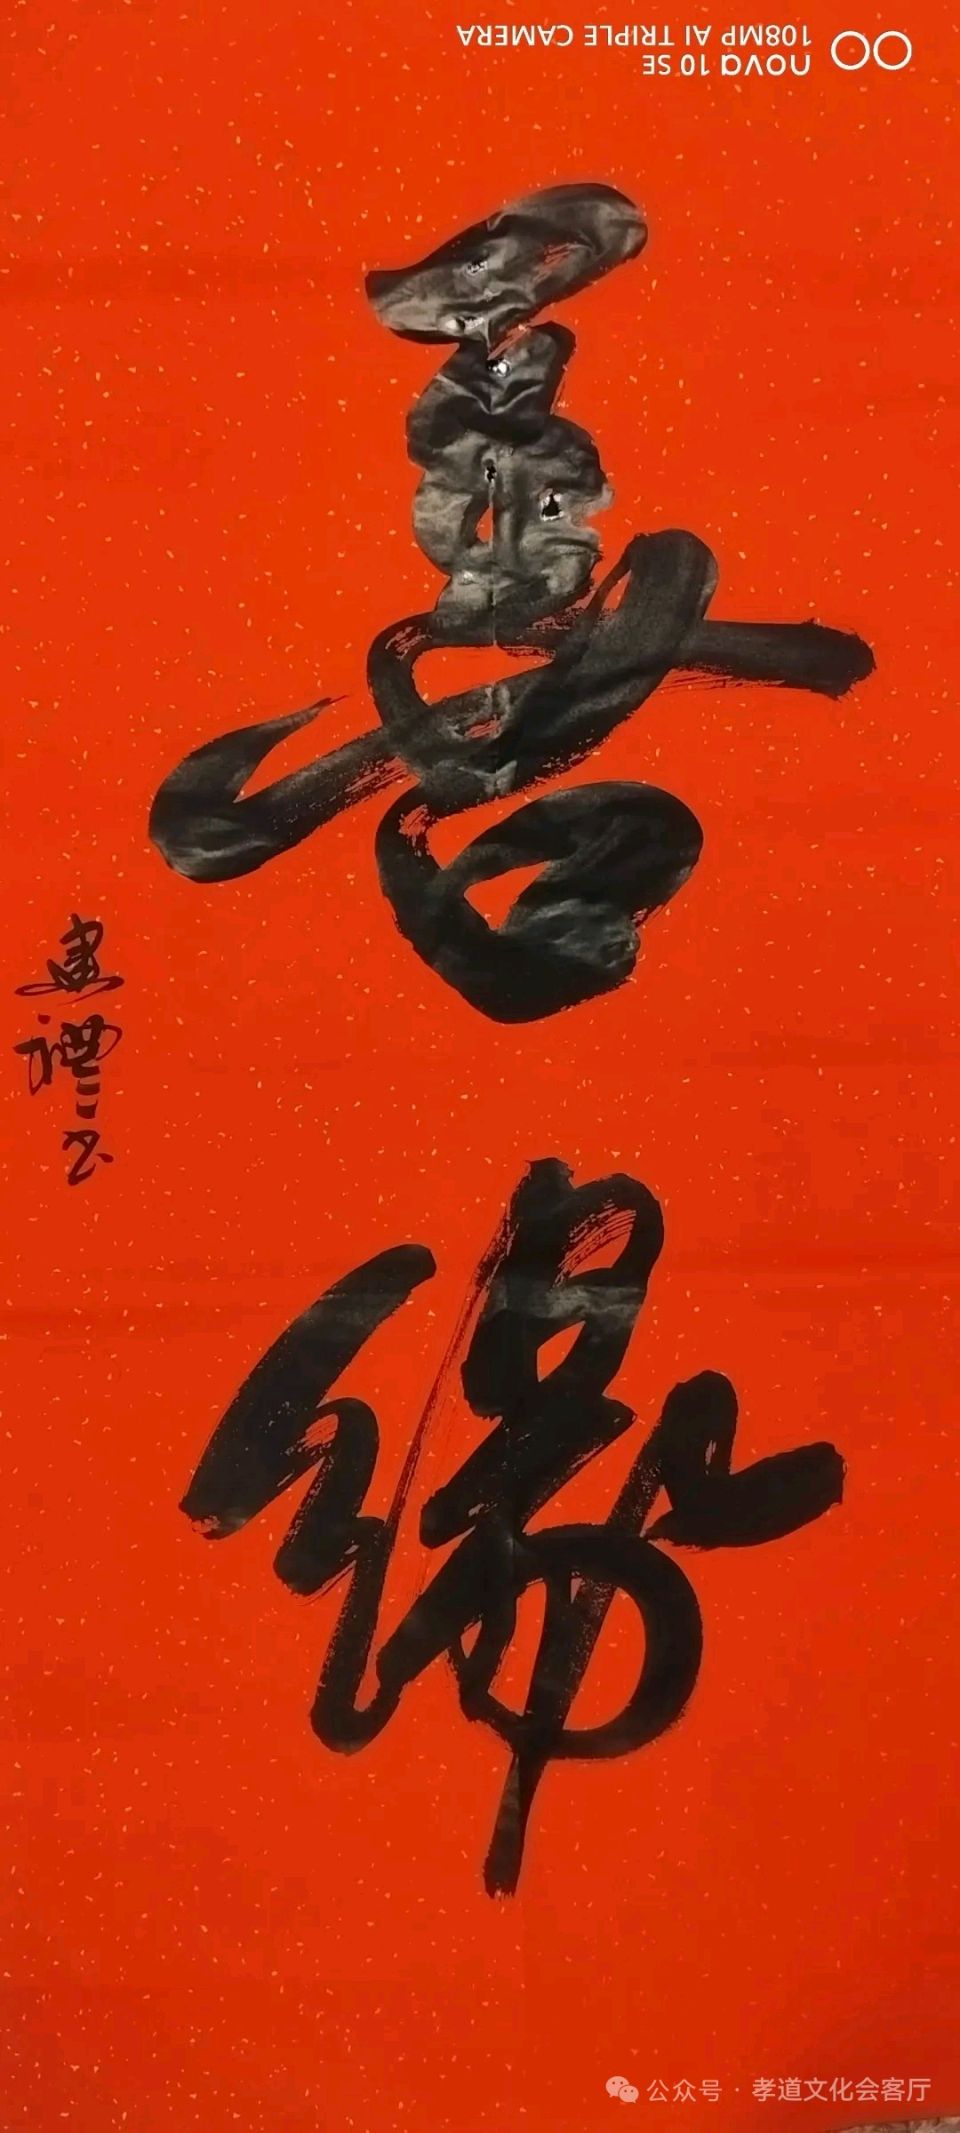 善缘
建禮书
nova 10 SE
108MP AI TRIPLE CAMERA
公众号 · 孝道文化会客厅